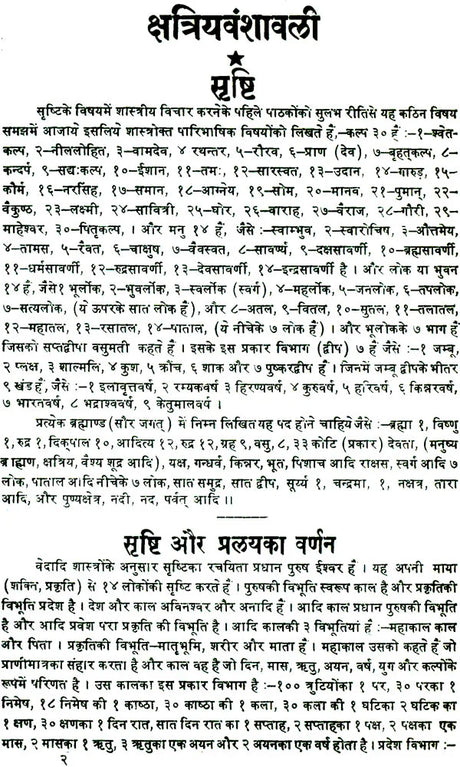 क्षत्रियवंशावली
★
सृष्टि
सृष्टिके विषयमें शास्त्रीय विचार करनेके पहिले पाठकोंको सुलभ रीतिसे यह कठिन विषय
समझमें आजाये इसलिये शास्त्रोक्त पारिभाषिक विषयोंको लिखते हैं,–कल्प ३० हैं :–१–श्वेत-
कल्प, २–नीललोहित, ३–वामदेव, ४ रथन्तर, ५–रौरव, ६–प्राण (देव), ७–वृहत्कल्प, ८–
कन्दर्प, ९–सद्यःकल्प, १०–ईशान, ११–तमः, १२–सारस्वत, १३–उदान, १४–गारुड़, १५–
कौर्म, १६–नरसिंह, १७–समान, १८–आग्नेय, १९–सोम, २०–मानव, २१–पुमान्, २२–
वैकुण्ठ, २३–लक्ष्मी, २४–सावित्री, २५–घोर, २६–वाराह, २७–वैराज, २८–गौरी, २९–
माहेश्वर, ३०–पितृकल्प, । और मनु १४ हैं, जैसे :–स्वाम्भुव, २–स्वारोचिष, ३–औत्तमेय,
४–तामस, ५–रैवत, ६–चाक्षुष, ७–वैवस्वत, ८–सावर्ण्य, ९–दक्षसावर्णी, १०–ब्रह्मसावर्णी,
११–धर्मसावर्णी, १२–रुद्रसावर्णी, १३–देवसावर्णी, १४–इन्द्रसावर्णी है । और लोक या भुवन
१४ हैं, जैसे१ भूर्लोक, २–भुवर्लोक, ३–स्वर्लोक (स्वर्ग), ४–महर्लोक, ५–जनलोक, ६–तपलोक,
७–सत्यलोक, (ये ऊपरके सात लोक हैं), और ८–अतल, ९–वितल, १०–सुतल, ११–तलातल,
१२–महातल, १३–रसातल, १४–पाताल, (ये नीचेके ७ लोक हैं) । और भूलोकके ७ भाग हैं
जिसको सप्तद्वीपा वसुमती कहते हैं । इसके इस प्रकार विभाग (द्वीप) ७ हैं जैसे :–१ जम्बू,
२ प्लक्ष, ३ शाल्मलि, ४ कुश, ५ क्रौंच, ६ शाक और ७ पुष्करद्वीप हैं । जिनमें जम्बू द्वीपके भीतर
९ खंड हैं, जैसे :–१ इलावृत्तवर्ष, २ रम्यकवर्ष ३ हिरण्यवर्ष, ४ कुरुवर्ष, ५ हरिवर्ष, ६ किन्नरवर्ष,
७ भारतवर्ष, ८ भद्राश्ववर्ष, ९ केतुमालवर्ष ।
प्रत्येक ब्रह्माण्ड (सौर जगत्) में निम्न लिखित यह पद होने चाहिये जैसे :–ब्रह्मा १, विष्णु
१, रुद्र १, दिक्पाल १०, आदित्य १२, रुद्र १२, ग्रह ९, वसु, ८, ३३ कोटि (प्रकार) देवता, (मनुष्य
ब्राह्मण, क्षत्रिय, वैश्य शूद्र आदि), यक्ष, गन्धर्व, किन्नर, भूत, पिशाच आदि राक्षस, स्वर्ग आदि ७
लोक, पाताल आदि नीचेके ७ लोक, सात समुद्र, सात द्वीप, सूर्य्य १, चन्द्रमा, १, नक्षत्र, तारा
आदि, और पुण्यक्षेत्र, नदी, नद, पर्वत् आदि ।।
सृष्टि और प्रलयका वर्णन
वेदादि शास्त्रोंके अनुसार सृष्टिका रचयिता प्रधान पुरुष ईश्वर हैं । यह अपनी माया
(शक्ति, प्रकृति) से १४ लोकोंकी सृष्टि करते हैं । पुरुषकी विभूति स्वरूप काल है और प्रकृतिकी
विभूति प्रदेश है । देश और काल अविनश्वर और अनादि हैं । आदि काल प्रधान पुरुषकी विभूति
है और आदि प्रवेश परा प्रकृति की विभूति है । आदि कालकी ३ विभूतियां हैं :–महाकाल काल
और पिता । प्रकृतिकी विभूति–मातृभूमि, शरीर और माता हैं । महाकाल उसको कहते हैं जो
प्राणीमात्रका संहार करता है और काल वह है जो दिन, मास, ऋतु, अयन, वर्ष, युग और कल्पोंके
रूपमें परिणत है । उस कालका इस प्रकार विभाग है :–१०० त्रुटियोंका १ पर, ३० परका १
निमेष, १८ निमेष की १ काष्ठा, ३० काष्ठा की १ कला, ३० कला की १ घटिका २ घटिक का
१ क्षण, ३० क्षणका १ दिन रात, सात दिन रात का १ सप्ताह, २ सप्ताहका १ पक्ष, २ पक्षका एक
मास, २ मासका १ ऋतु, ३ ऋतुका एक अयन और २ अयनका एक वर्ष होता है । प्रदेश विभाग :–
२